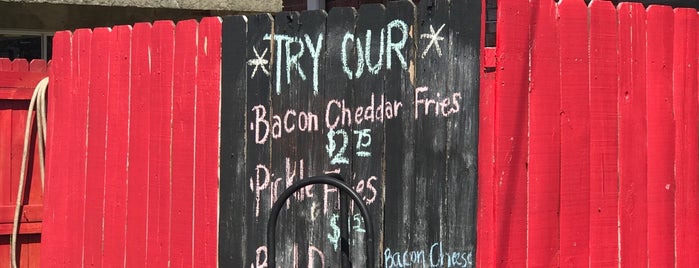 *TRY OUR*
·Bacon Cheddar Fries
$2.75
·Pickle Fries
Bacon Cheese